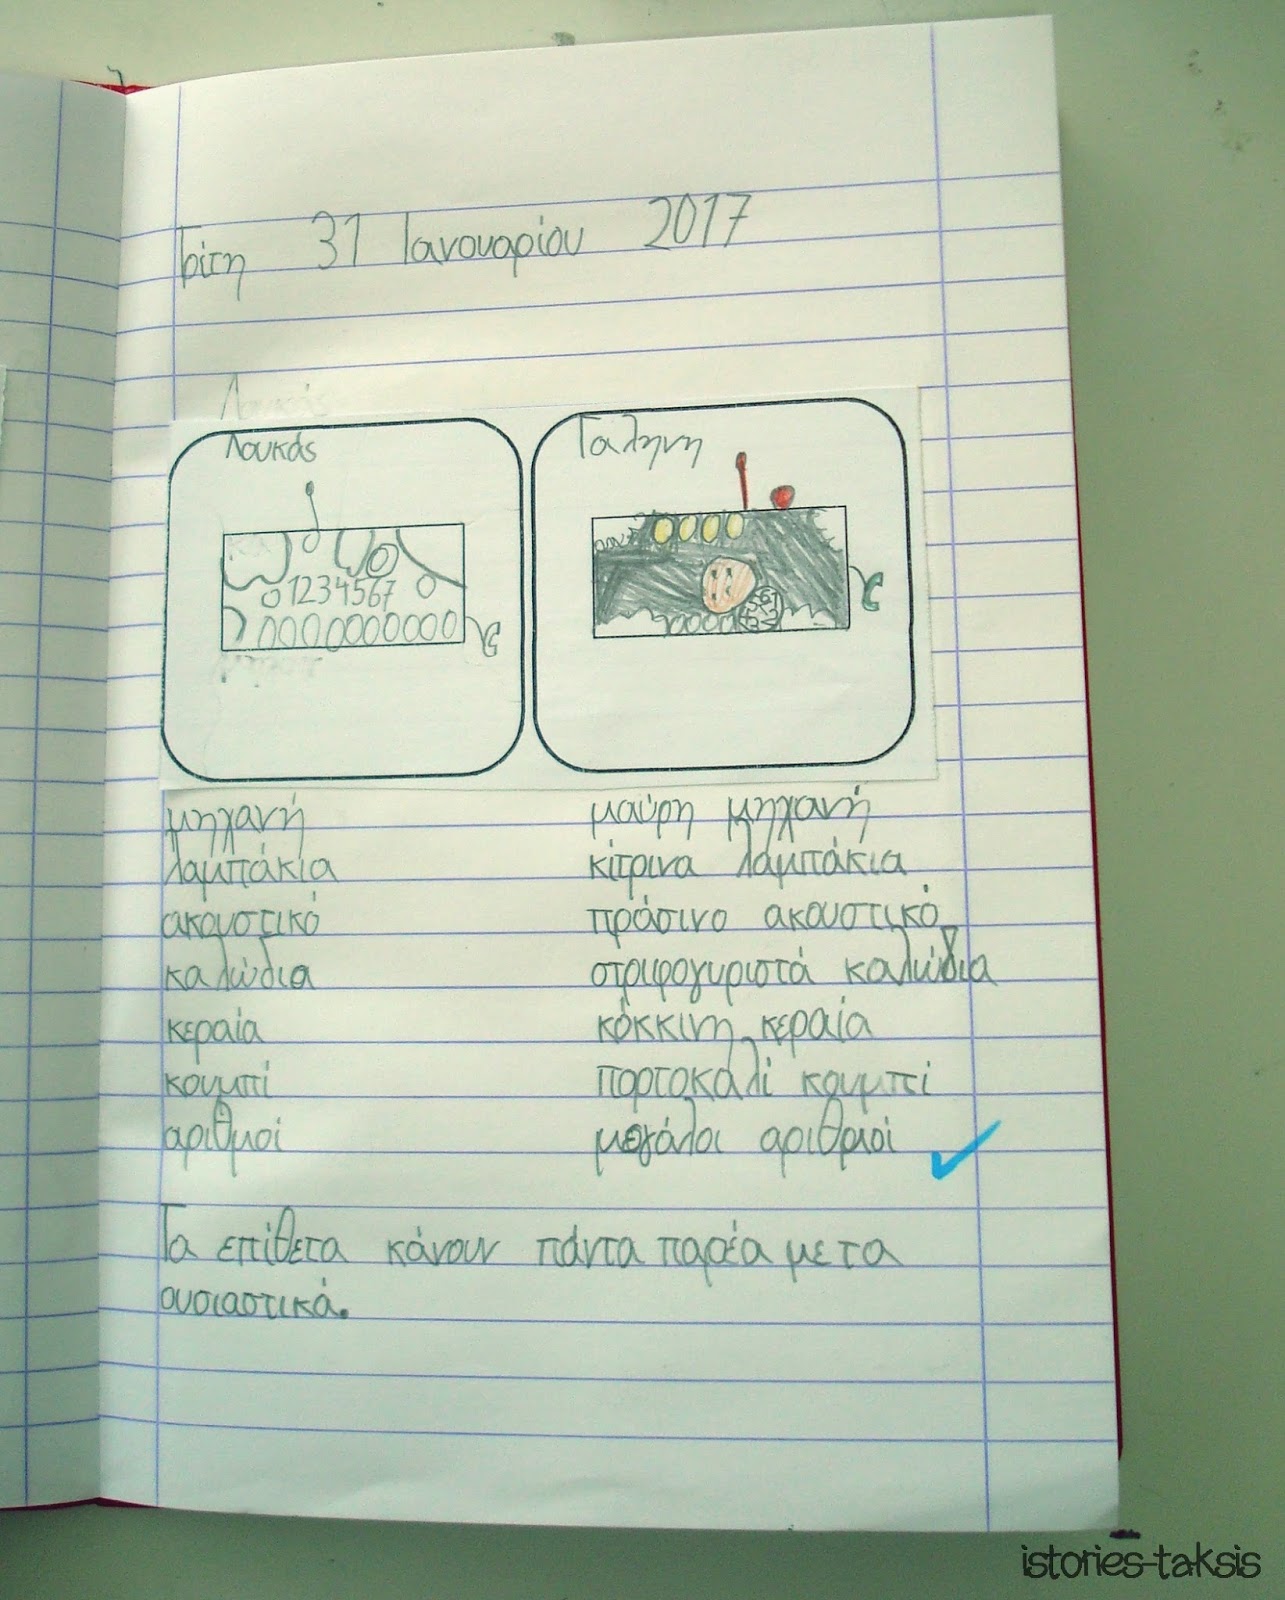 Τρίτη 31 Ιανουαρίου 2017
Λουκάς
Γαλήνη
1234567
μηχανή μαύρη μηχανή
λαμπάκια κίτρινα λαμπάκια
ακουστικό πράσινο ακουστικό
καλώδια στριφογυριστά καλώδια
κεραία κόκκινη κεραία
κουμπί πορτοκαλί κουμπί
αριθμοί μεγάλοι αριθμοί
Τα επίθετα κάνουν πάντα παρέα με τα
ουσιαστικά.
istories-taksis